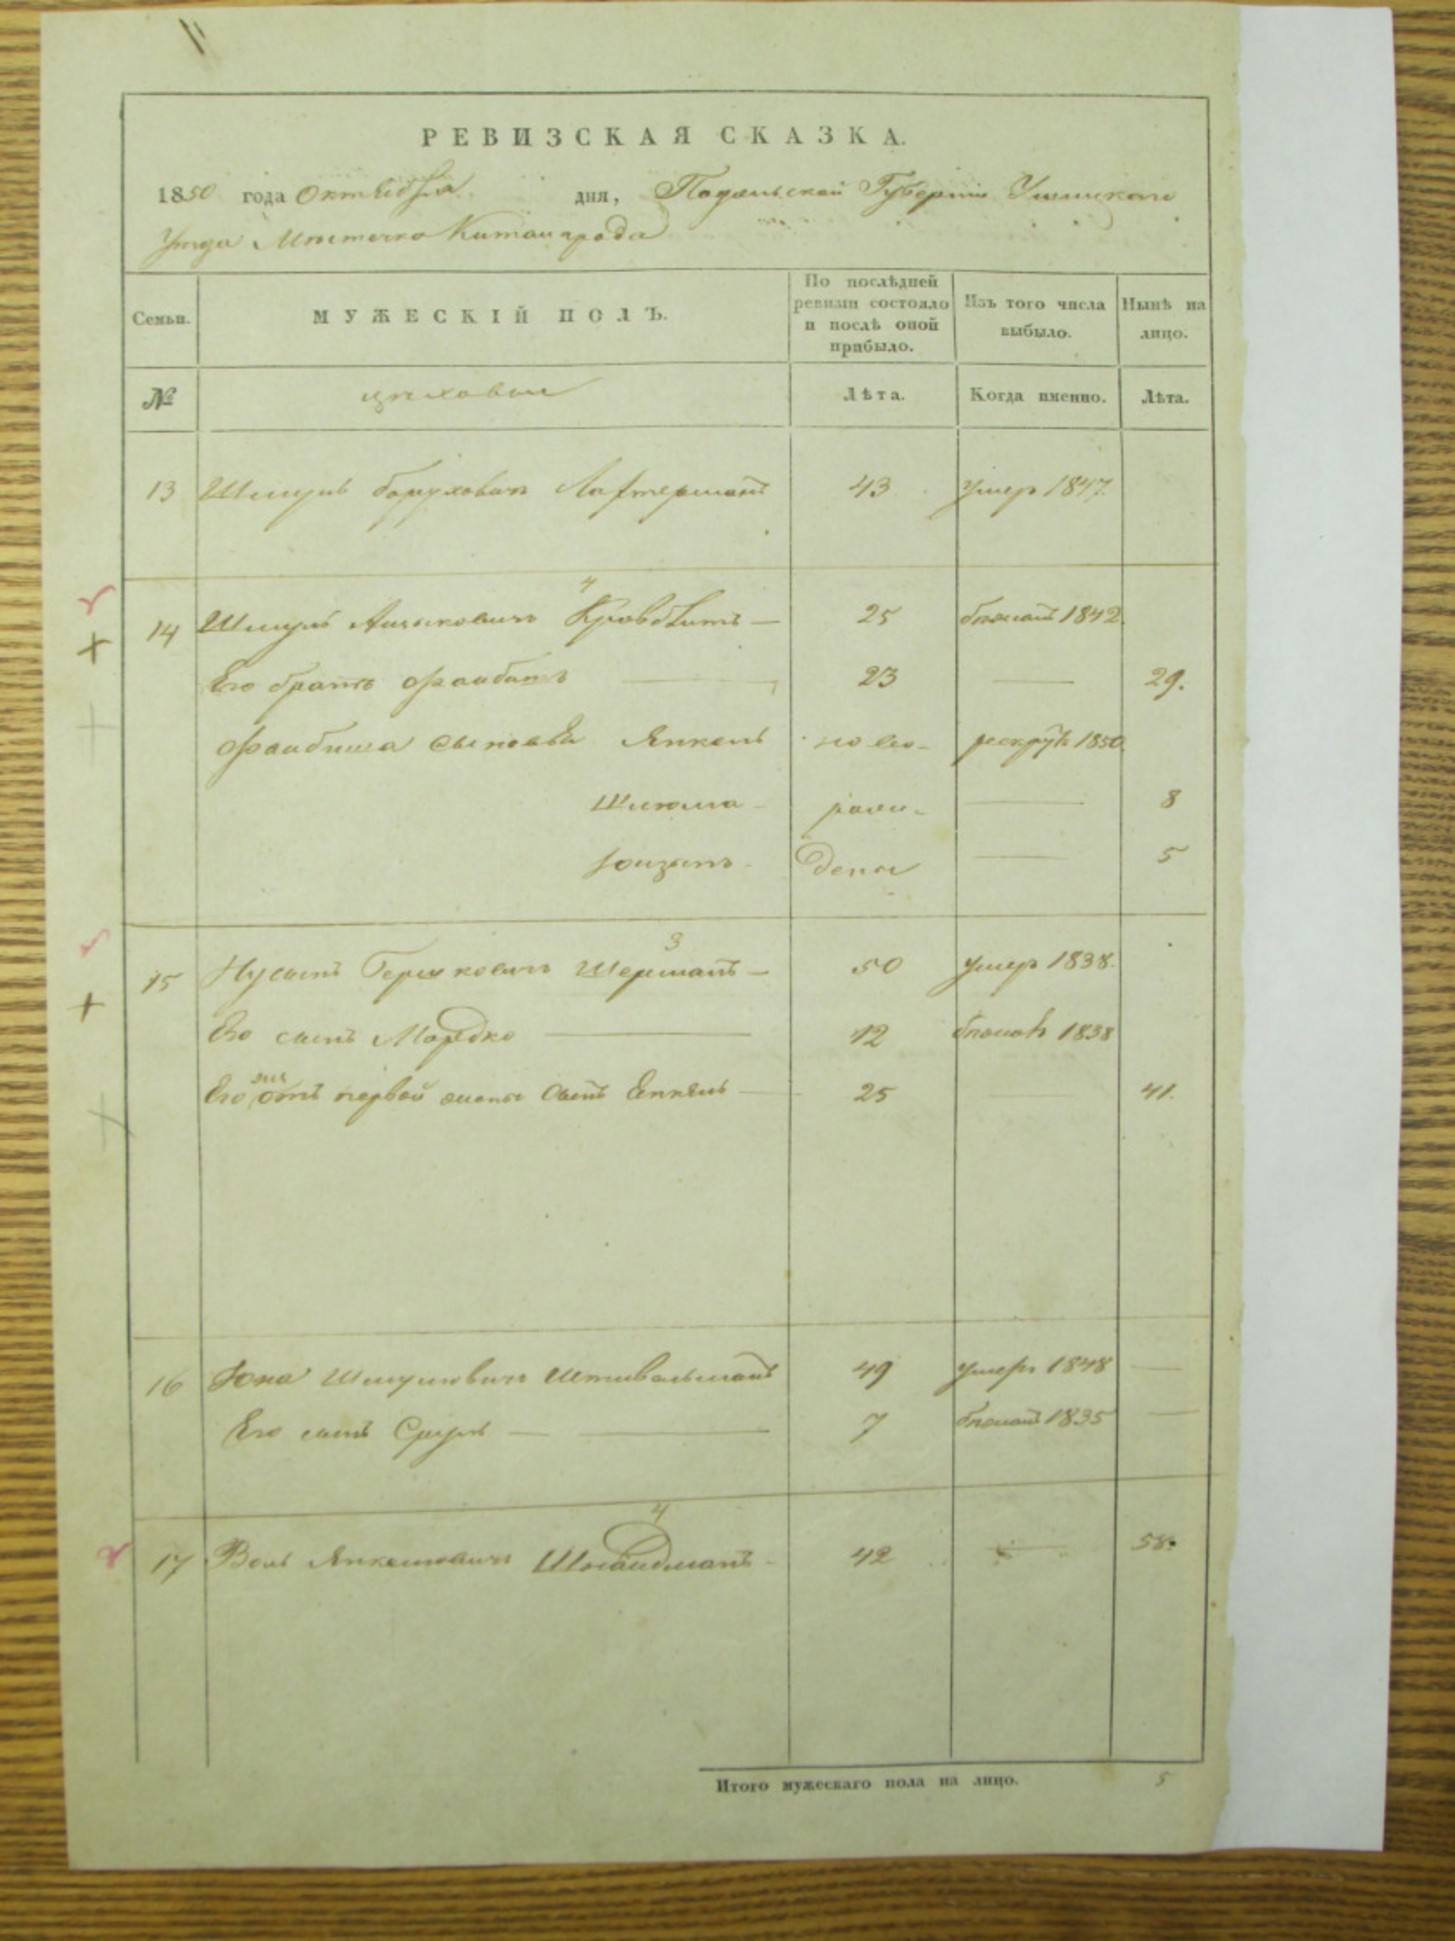 11
РЕВИЗСКАЯ СКАЗКА.
1850 года Октября дня, Подольской Губернии Ушицкого
Уезда Местечка Китайгорода
Семьи. МУЖЕСКІЙ ПОЛЪ. По послѣдней ревизіи состояло и послѣ оной прибыло. Изъ того числа выбыло. Нынѣ на лицо.
№ цеховые Лѣта. Когда именно. Лѣта.
13 Шмуль Борухович Лахтерманъ 43 умер 1847.
4
14 Шмуль Кровбитъ — 25 1842
Его братъ Файбишъ — 23 — 29.
Файбиша сыновья Янкель ново- рекрутъ 1850.
Шлюма - рожи- — 8
дены — 5
3
15 Нусынъ Гершковичъ Шерманъ — 50 умер 1838.
Его сынъ Мордко — 12 1838
Его отъ первой жены сынъ — 25 — 41.
16 Иона Шмулиовичъ Штивельманъ 49 умеръ 1848 —
Его сынъ Сруль — — 7 1835 —
4
17 Волъ Янкелиовичъ 42 — 58.
Итого мужескаго пола на лицо. 5